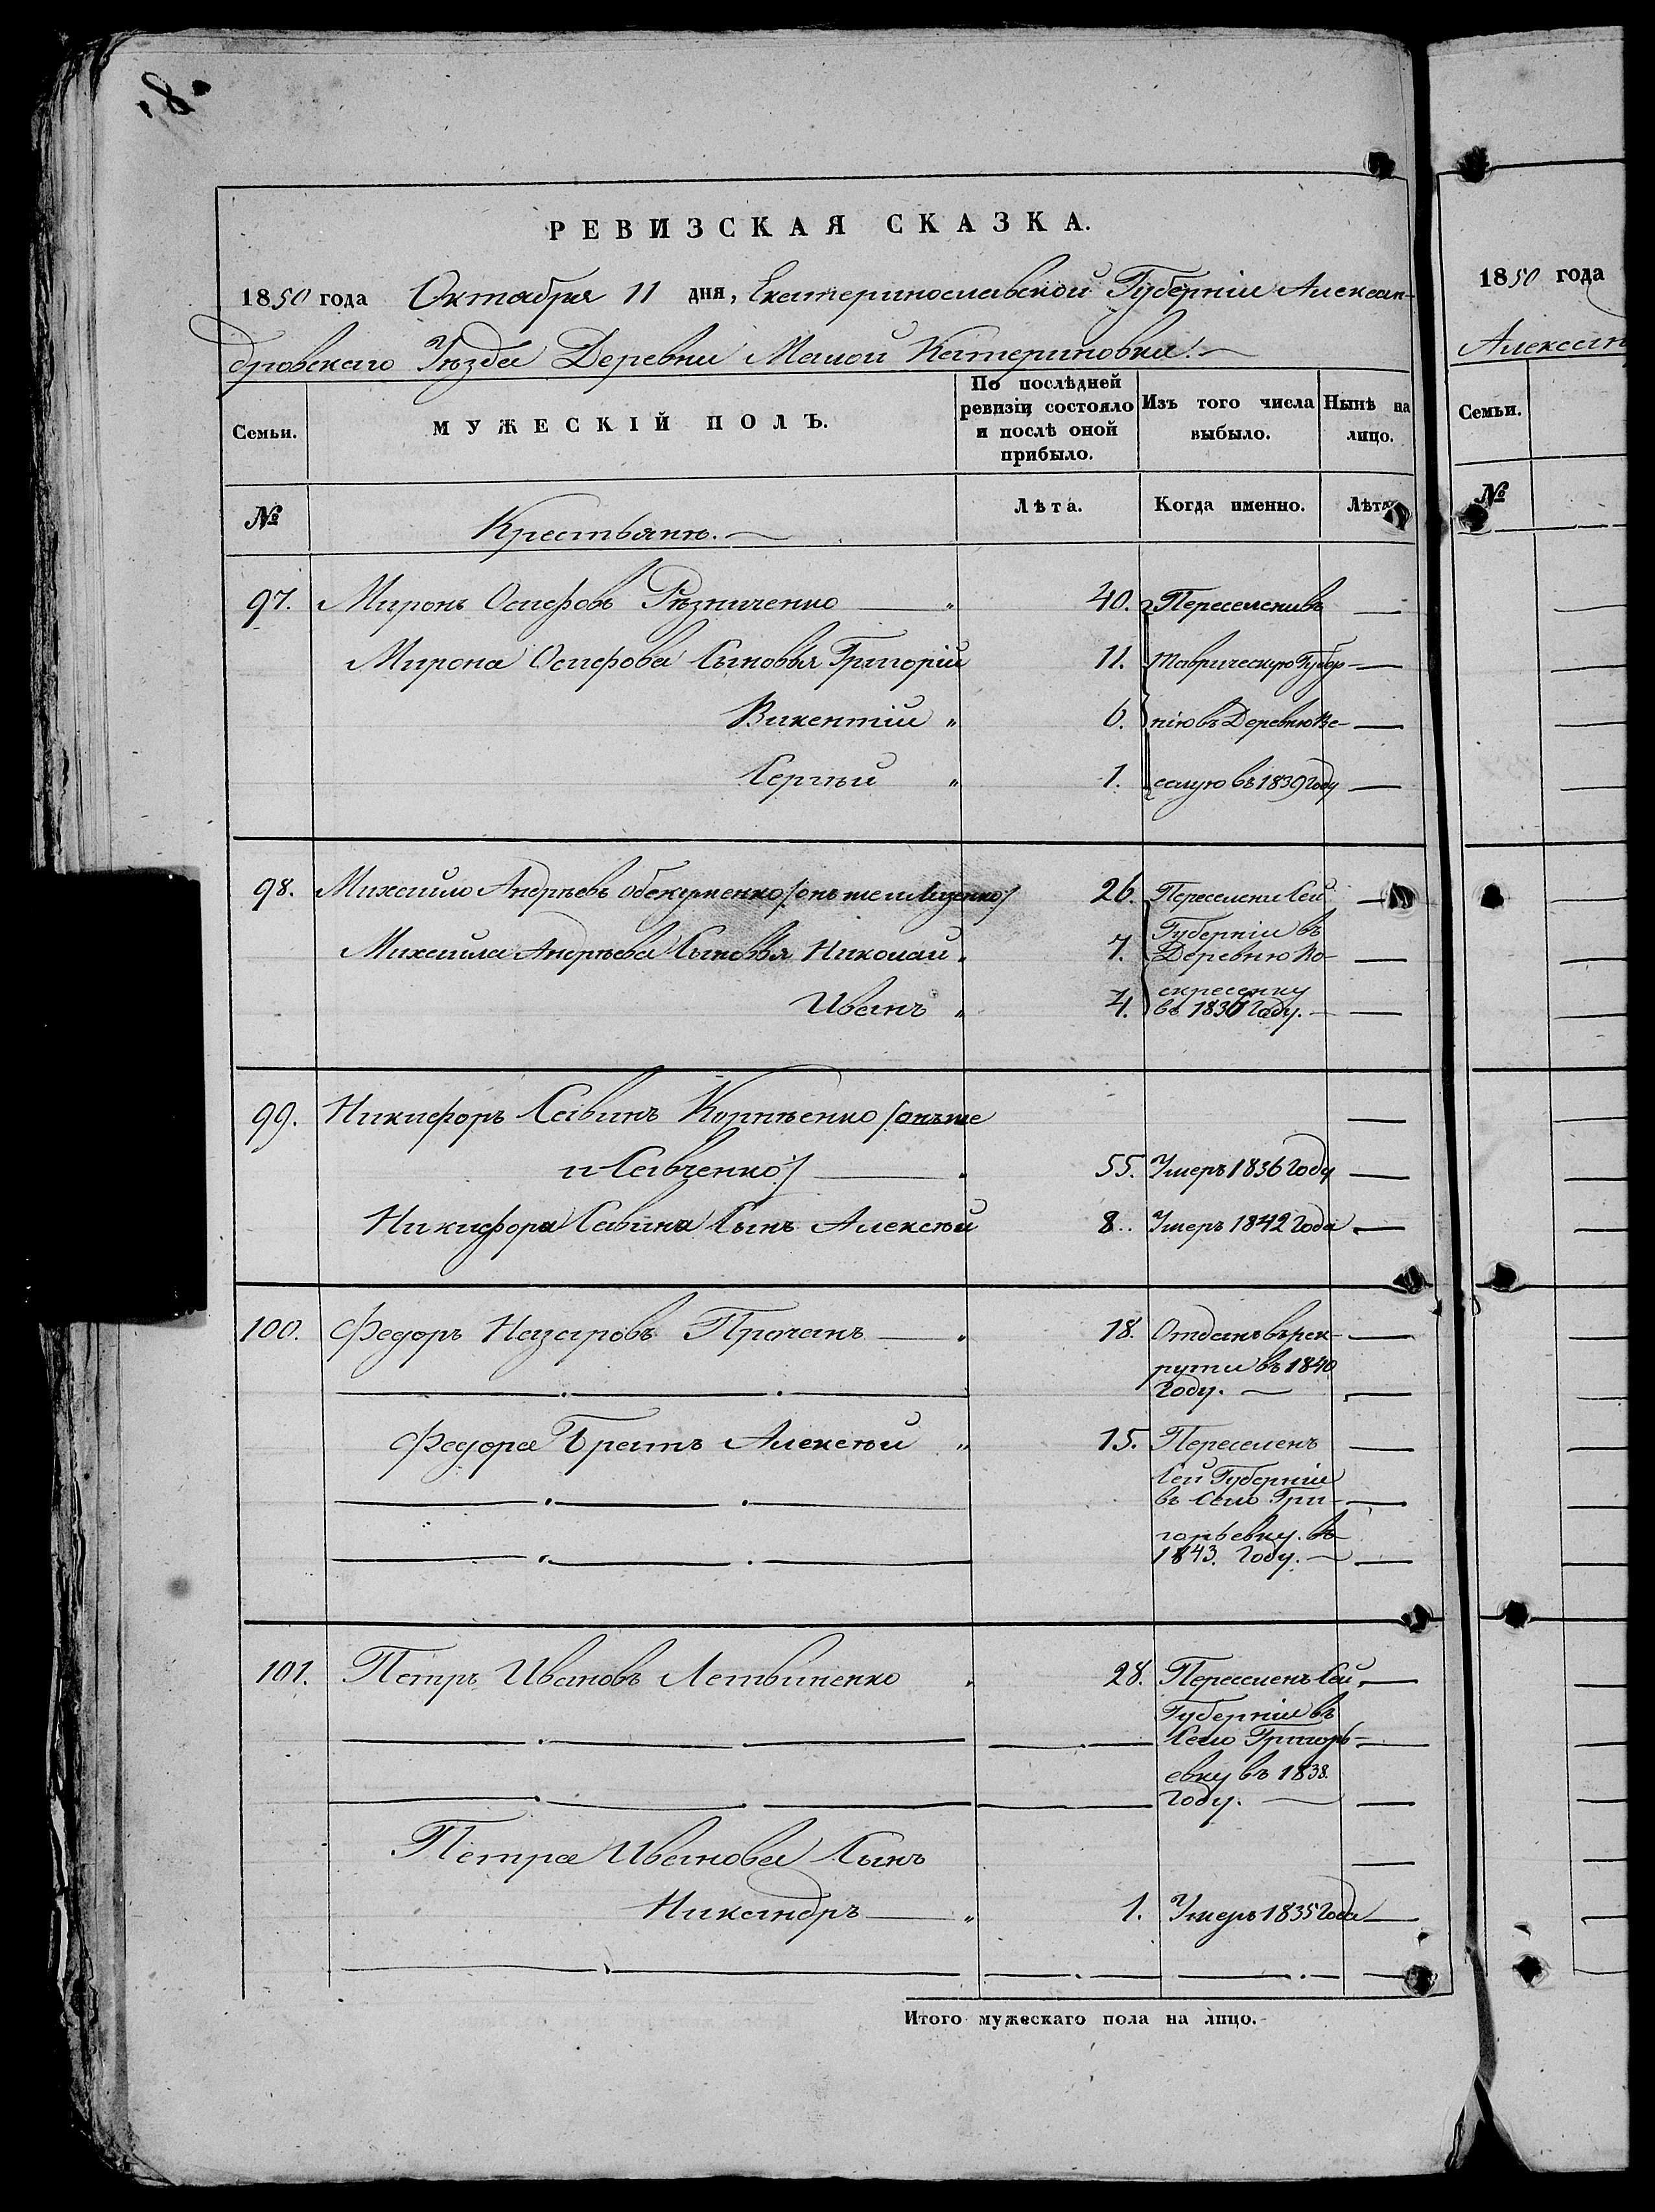 8
РЕВИЗСКАЯ СКАЗКА.
1850 года Октября 11 дня, Екатеринославской Губерніи Алексан-
дровскаго Уѣзда Деревни Малой Катериновки.
Семьи.
МУЖЕСКІЙ ПОЛЪ.
По послѣдней ревизіи состояло и послѣ оной прибыло.
Изъ того числа выбыло.
Нынѣ на лицо.
№
Крестьянъ.
Лѣта.
Когда именно.
Лѣта
97. Миронъ Осифовъ Рѣзниченко 40. Переселени въ
Мирона Осифова Сыновья Григорій 11. Таврическую Губер-
Викентій " 6. нію въ Деревню Ве-
Сергѣй " 1. селую въ 1839 Году
98. Михайло Андрѣевъ /онъ же и 26. Переселени Сей
Губерніи въ
Михайла Андрѣева Сыновья Николай 7. Деревню Во-
скресенку
Иванъ " 4. въ 1836 Году.
99. Никифоръ Савинъ Корнѣенко /онъ же
и Савченко/ 55. Умеръ 1836 Году
Никифора Савина Сынъ Алексѣй 8. Умеръ 1842 Года
100. Федоръ Назаровъ Прочанъ 18. Отданъ въ рек-
рути въ 1840
Году.
Федора Братъ Алексѣй " 15. Переселенъ
Сей Губерніи
въ Село Гри-
горьевку въ
1843. Году.
101. Петръ Ивановъ Летвиненко 28. Переселенъ Сей
Губерніи въ
Село Григорь-
евку въ 1838.
Году.
Петра Иванова Сынъ
Никандръ " 1. Умеръ 1835 Года
Итого мужескаго пола на лицо.
1850 года
Алексан
Семьи.
№